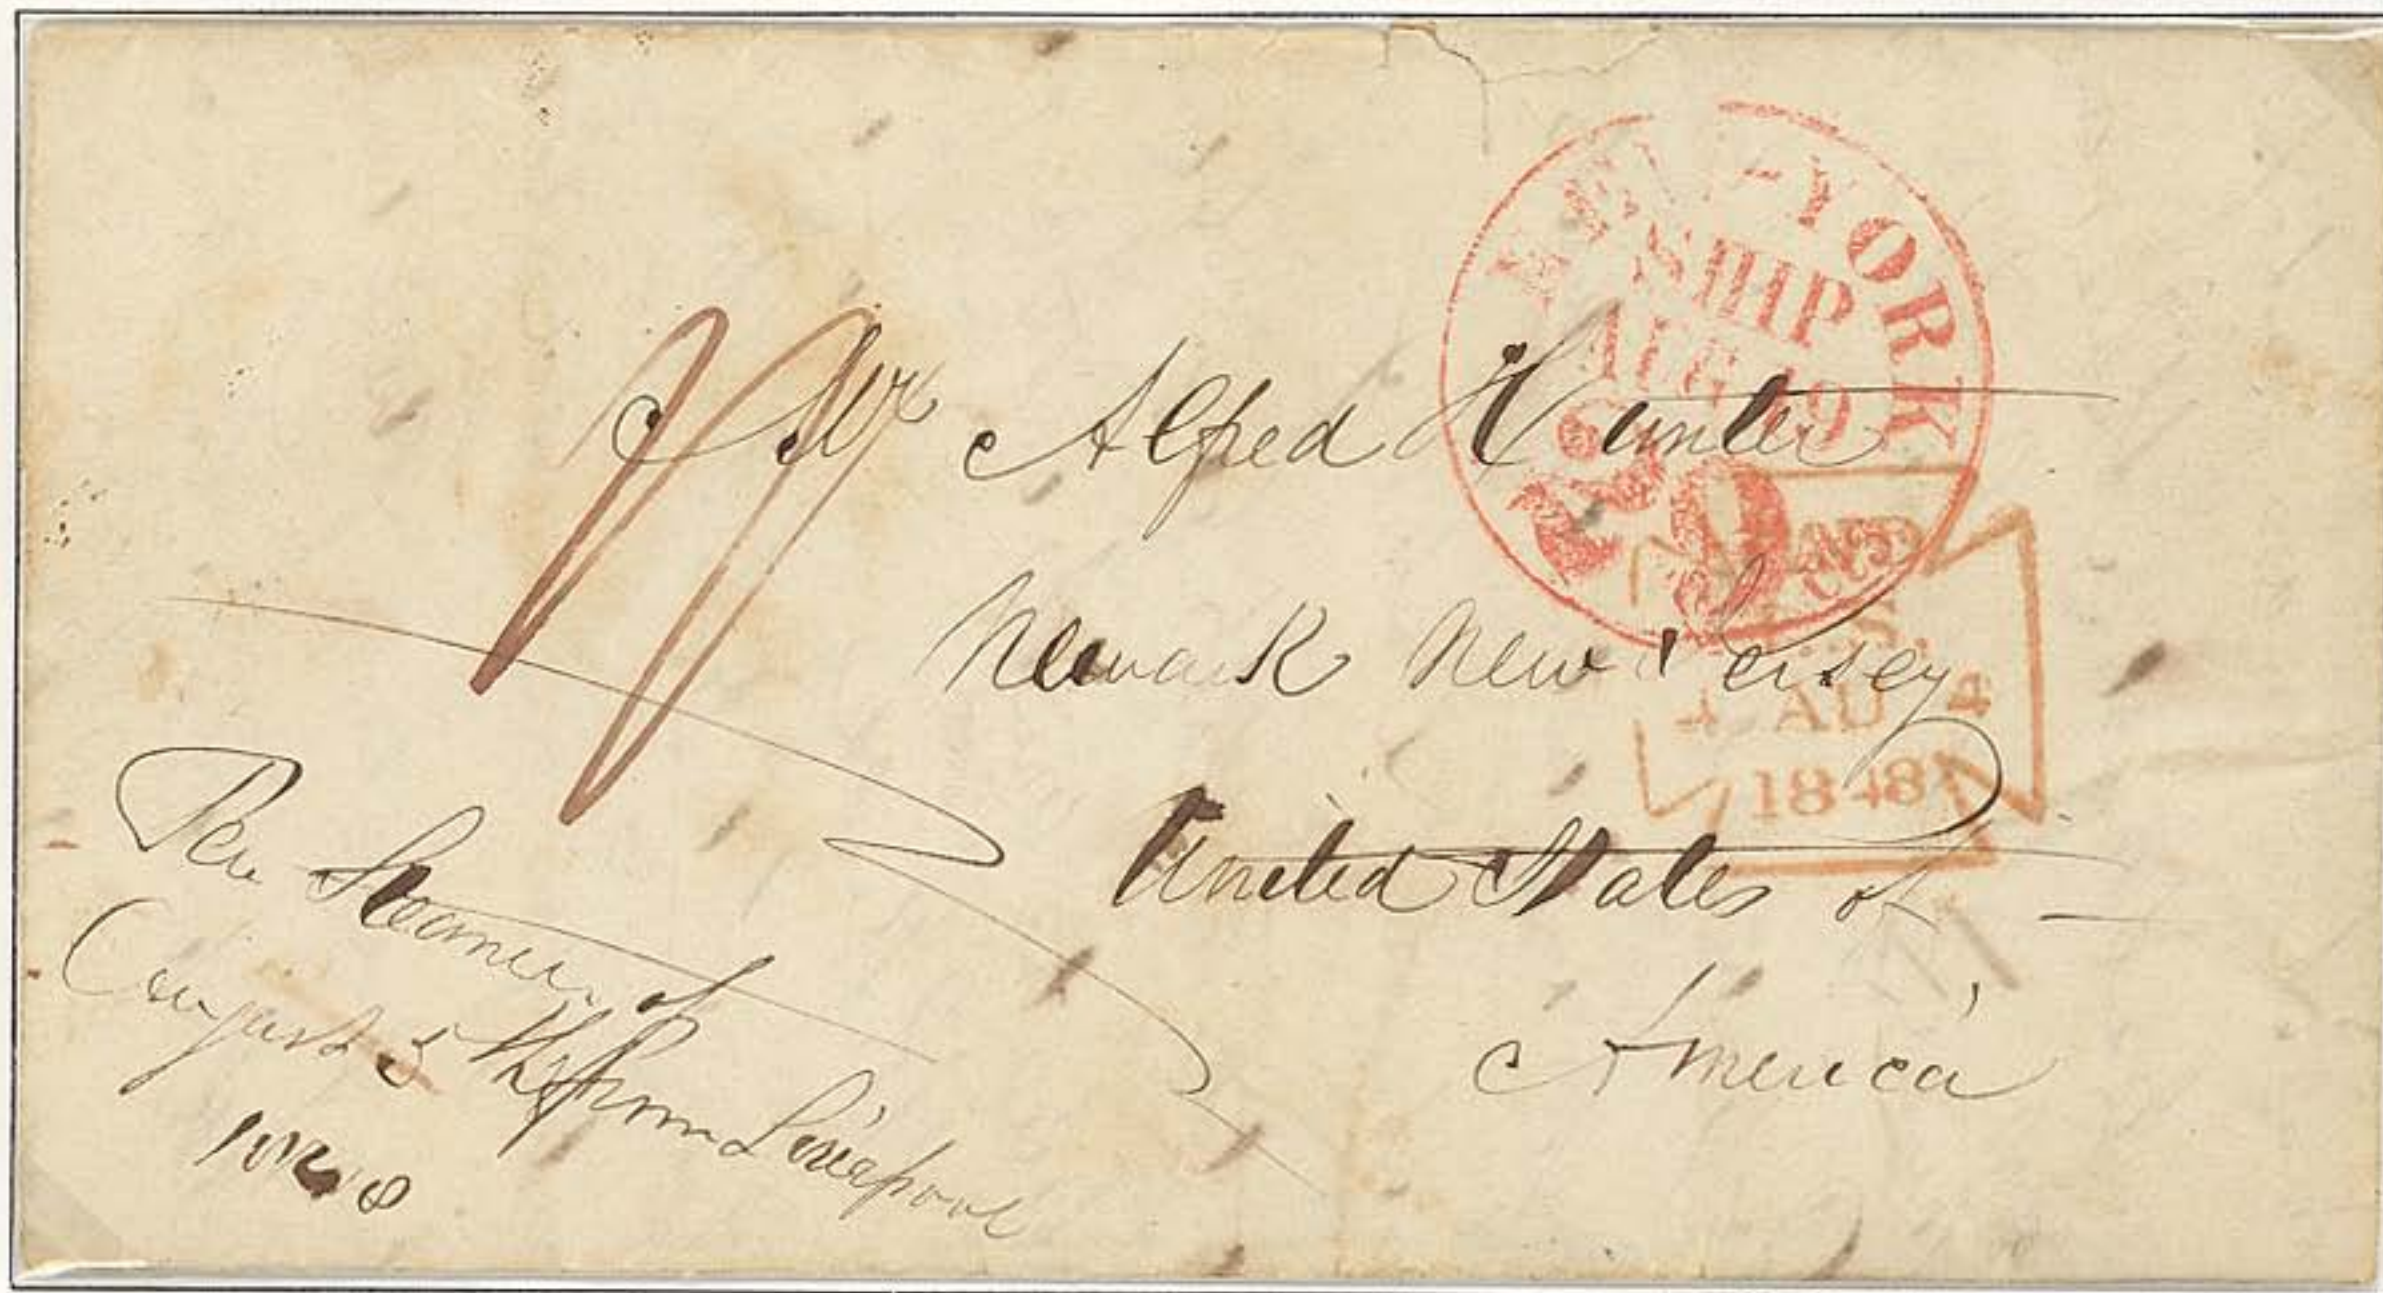 NEW-YORK
SHIP
AUG 19
59
cts
Mr Alfred Hunter
Newark New Jersey
United States of
America
PAID
4 AU 4
1848
Per Steamer of
August 5 The from Liverpool
1848